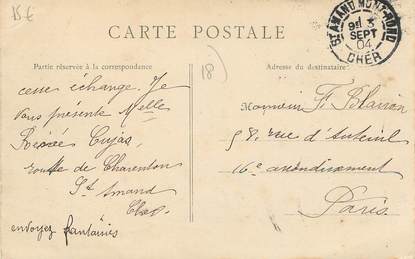 15 €
CARTE POSTALE
Partie réservée à la correspondance
Adresse du destinataire
18
St AMAND MONT-ROND
9H 3
SEPT
04
CHER
cesse échange. Je
Vous présente Melle
Cujas
route de Charenton
St Amand
Cher
envoyez fantaisies
Monsieur
58, rue d'Auteuil
16e arrondissement
Paris